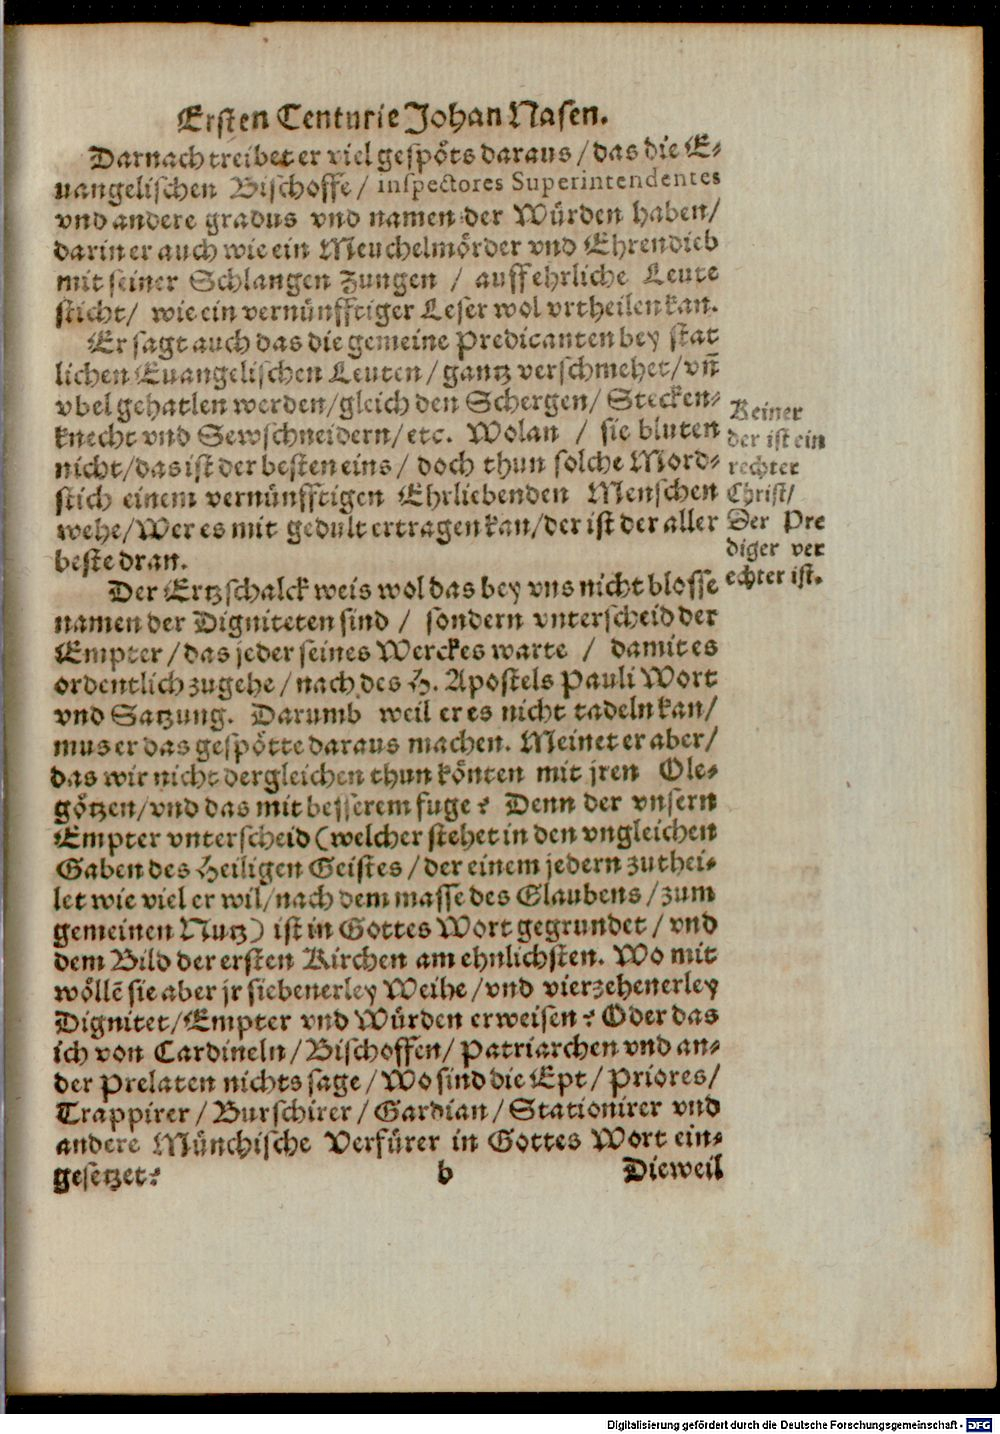 Ersten Centurie Johan Nasen.
Darnach treibet er viel gespöts daraus / das die E⸗
uangelischen Bischoffe / inspectores Superintendentes
vnd andere gradus vnd namen der Würden haben/
darin er auch wie ein Meuchelmörder vnd Ehrendieb
mit seiner Schlangen Zungen / auff ehrliche Leute
sticht/ wie ein vernünfftiger Leser wol vrtheilen kan.
Er sagt auch das die gemeine Predicanten bey stat
lichen Euangelischen Leuten / gantz verschmehet / vñ
vbel gehatlen werden/gleich den Schergen/ Stecken⸗
knecht vnd Sewschneidern/etc. Wolan / sie bluten
nicht/das ist der besten eins / doch thun solche Mord⸗
stich einem vernünfftigen Ehrliebenden Menschen
wehe/Wer es mit gedult ertragen kan/der ist der aller
beste dran.
Keiner
der ist ein
rechter
Christ/
Der Pre
diger ver
echter ist.
Der Ertzschalck weis wol das bey vns nicht blosse
namen der Digniteten sind / sondern vnterscheid der
Empter / das jeder seines Werckes warte / damit es
ordentlich zugehe / nach des H. Apostels Pauli Wort
vnd Satzung. Darumb weil er es nicht tadeln kan/
mus er das gespötte daraus machen. Meinet er aber/
das wir nicht dergleichen thun könten mit jren Ole⸗
götzen/vnd das mit besserem fuge? Denn der vnsern
Empter vnterscheid (welcher stehet in den vngleichen
Gaben des Heiligen Geistes / der einem jedern zuthei⸗
let wie viel er wil/nach dem masse des Glaubens / zum
gemeinen Nutz) ist in Gottes Wort gegrundet / vnd
dem Bild der ersten Kirchen am ehnlichsten. Wo mit
wöllẽ sie aber jr siebenerley Weihe / vnd vierzehenerley
Dignitet/Empter vnd Würden erweisen? Oder das
ich von Cardineln / Bischoffen/ Patriarchen vnd an⸗
der Prelaten nichts sage / Wo sind die Ept / Priores/
Trappirer / Burschirer / Gardian / Stationirer vnd
andere Münchische Verfürer in Gottes Wort ein⸗
gesetzet?
b
Dieweil
Digitalisierung gefördert durch die Deutsche Forschungsgemeinschaft - DFG